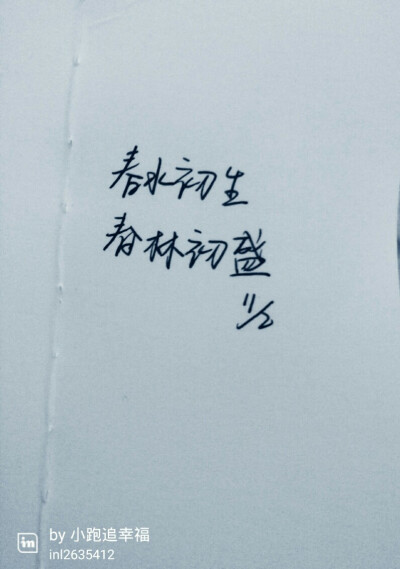 春水初生
春林初盛
11/2
in by 小跑追幸福
inl2635412